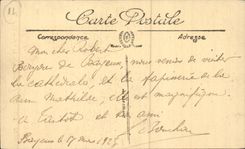 Carte Postale
Correspondance
Adresse
Mon cher Robert
Bonjour de Bayeux, nous venons de visiter
la cathédrale, et la tapisserie de la
reine Mathilde, est magnifique
à bientôt et bon
Bayeux le 17 mars 1925